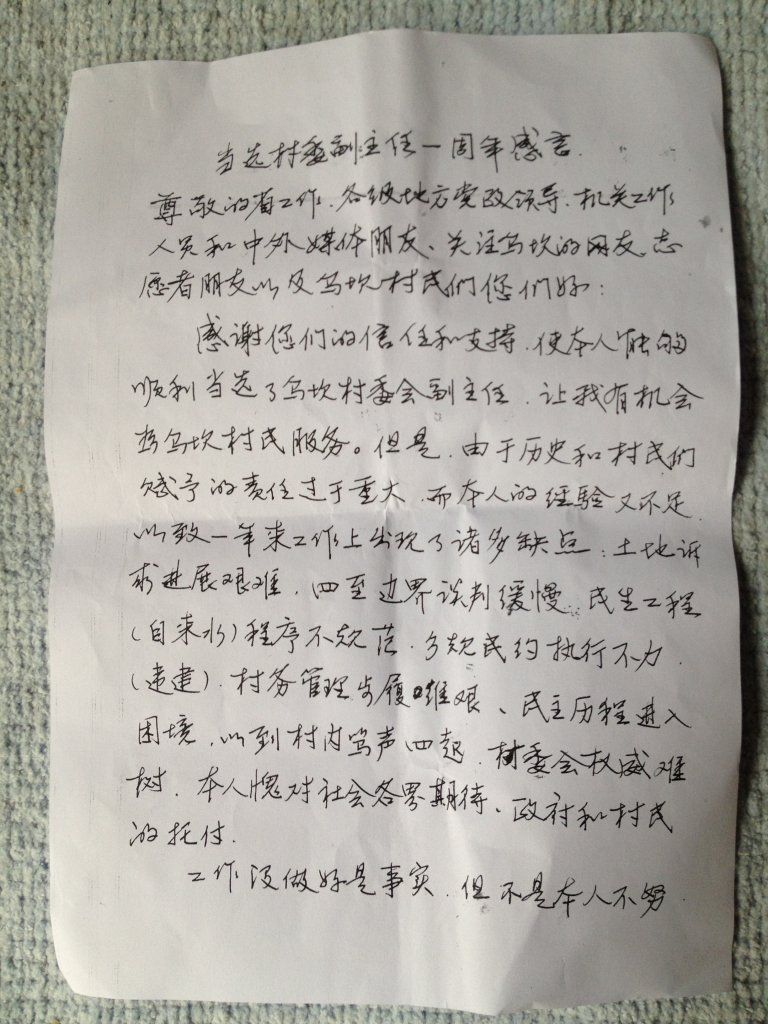 当选村委副主任一周年感言.
尊敬的省工作、各级地方党政领导、机关工作
人员和中外媒体朋友、关注乌坎的网友、志
愿者朋友以及乌坎村民们您们好:
感谢您们的信任和支持,使本人能够
顺利当选了乌坎村委会副主任,让我有机会
为乌坎村民服务。但是,由于历史和村民们
赋予的责任过于重大,而本人的经验又不足,
以致一年来工作上出现了诸多缺点:土地诉
求进展艰难,四至边界谈判缓慢、民生工程
(自来水)程序不规范、乡规民约执行不力
(违建)、村务管理步履唯艰、民主历程进入
困境,以到村内骂声四起,村委会权威难
树,本人愧对社会各界期待、政府和村民
的托付.
工作没做好是事实,但不是本人不努